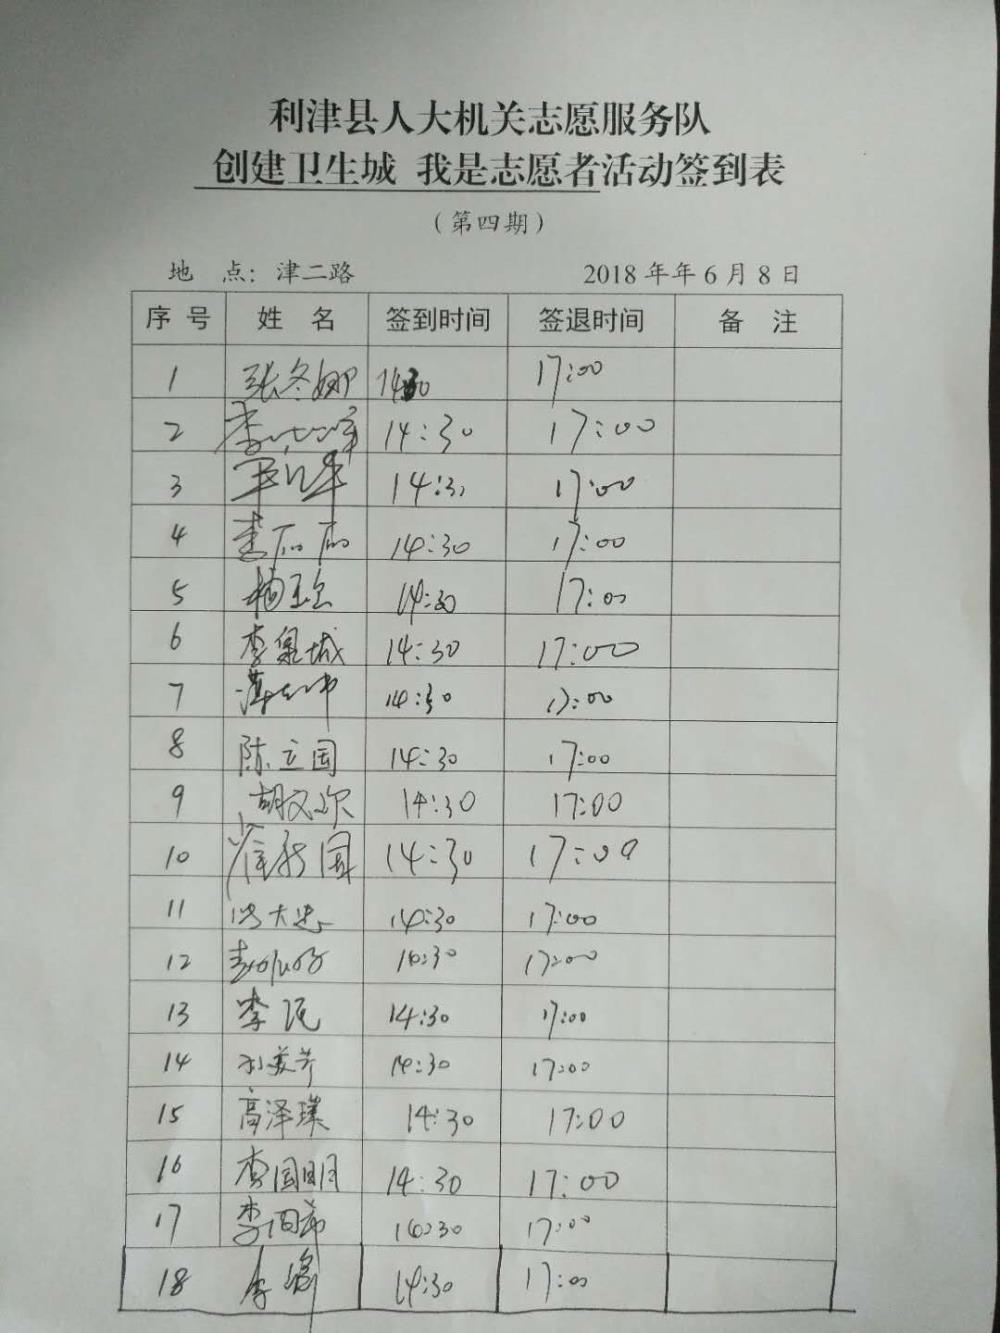 利津县人大机关志愿服务队
创建卫生城 我是志愿者活动签到表
（第四期）
地 点：津二路 2018年年6月8日
序 号 姓 名 签到时间 签退时间 备 注
1 张冬娜 14:30 17:00
2 14:30 17:00
3 14:30 17:00
4 李丽丽 14:30 17:00
5 14:30 17:00
6 李泉城 14:30 17:00
7 14:30 17:00
8 陈立国 14:30 17:00
9 14:30 17:00
10 崔新国 14:30 17:00
11 14:30 17:00
12 14:30 17:00
13 14:30 17:00
14 刘美芳 14:30 17:00
15 高泽璞 14:30 17:00
16 李国明 14:30 17:00
17 14:30 17:00
18 14:30 17:00